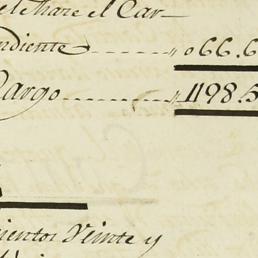 le hare el Car-
ndiente 066.6
Cargo 1198.5
cientos Veinte y